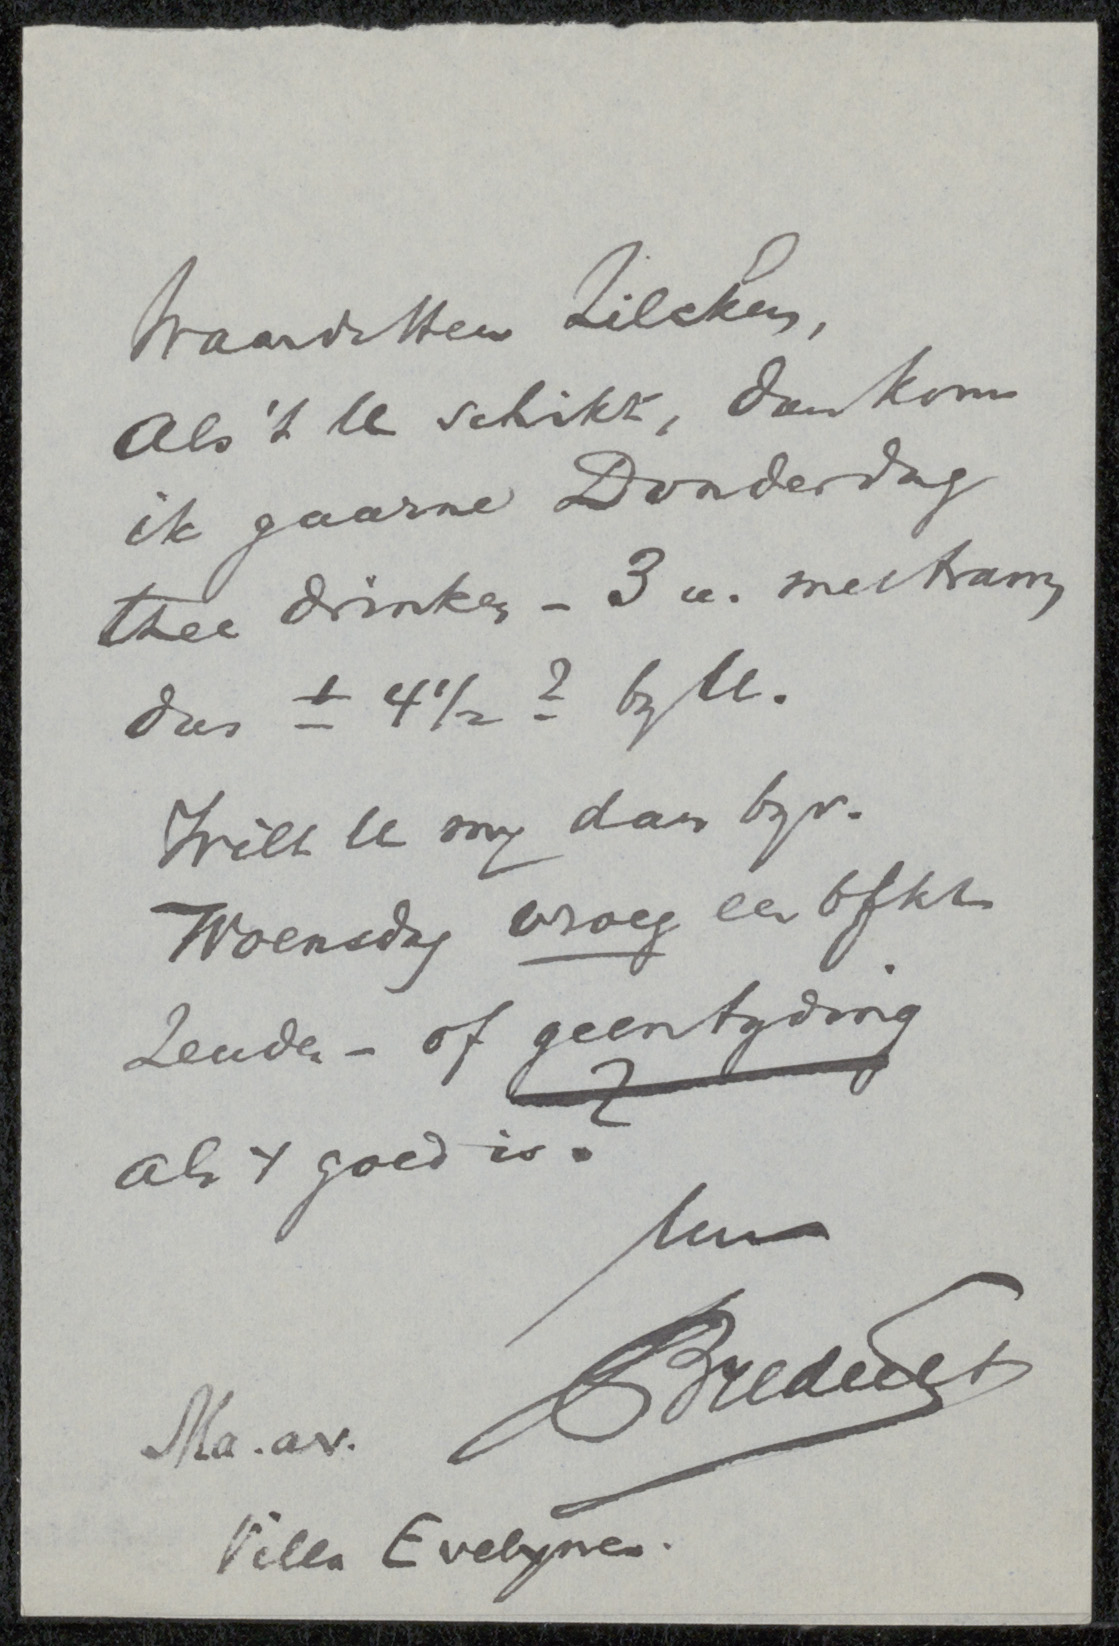 Waarde Heer Zilcken,
Als 't U schikt, dan kom
ik gaarne Donderdag
thee drinken – 3 u. met tram,
dus ± 4 1/2 ? by U.
Wilt U my dan byv.
Woensdag vroeg een bfkt
zenden – of geen tyding
als 't goed is?
Uw
Bredius
Ma. av.
Villa Evelyne.